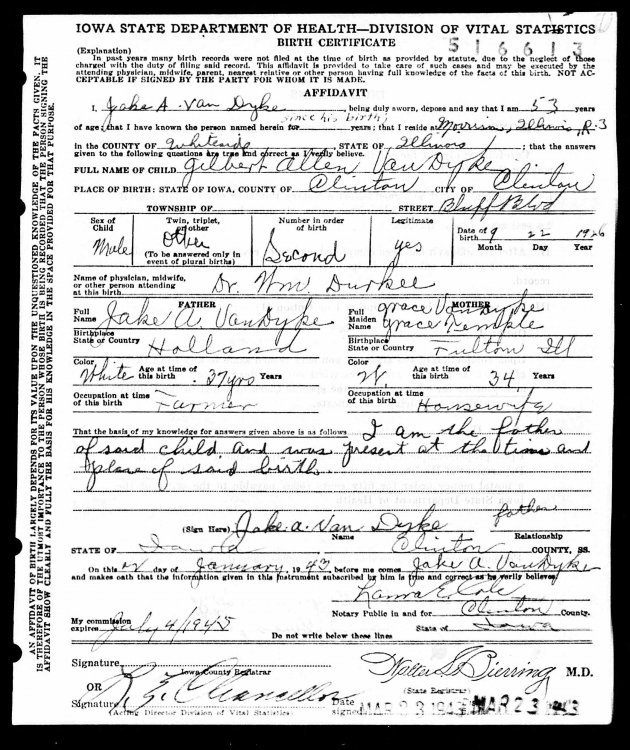 IOWA STATE DEPARTMENT OF HEALTH—DIVISION OF VITAL STATISTICS
BIRTH CERTIFICATE
516613
(Explanation)
In past years many birth records were not filed at the time of birth as provided by statute, due to the neglect of those
charged with the duty of filing said record. This affidavit is provided to take care of such cases and may be executed by the
attending physician, midwife, parent, nearest relative or other person having full knowledge of the facts of this birth. NOT AC-
CEPTABLE IF SIGNED BY THE PARTY FOR WHOM IT IS MADE.
AFFIDAVIT
I, Jake A. Van Dyke being duly sworn, depose and say that I am 53 years
since his birth
of age; that I have known the person named herein for years; that I reside at Morrison, Illinois, R-3
in the COUNTY OF Whiteside, STATE OF Illinois; that the answers
given to the following questions are true and correct as I verily believe.
FULL NAME OF CHILD Gilbert Allen Van Dyke
PLACE OF BIRTH: STATE OF IOWA, COUNTY OF Clinton CITY OF Clinton
TOWNSHIP OF STREET Bluff Blvd
Sex of Child Male
Twin, triplet, or other Other
(To be answered only in event of plural births)
Number in order of birth Second
Legitimate yes
Date of birth 9 22 1926
Month Day Year
Name of physician, midwife,
or other person attending
at this birth Dr. Wm Durkee
FATHER
Full Name Jake A. Van Dyke
Birthplace State or Country Holland
Color White Age at time of this birth 37 yrs Years
Occupation at time of this birth Farmer
MOTHER
Grace Van Dyke
Full Maiden Name Grace Temple
Birthplace State or Country Fulton Ill
Color W. Age at time of this birth 34 Years
Occupation at time of this birth Housewife
That the basis of my knowledge for answers given above is as follows I am the father
of said child and was present at the time and
place of said birth.
(Sign Here) Jake A. Van Dyke father
Name Relationship
STATE OF Iowa Clinton COUNTY, SS.
On this day of January 1943 before me comes Jake A. Van Dyke
and makes oath that the information given in this instrument subscribed by him is true and correct as he verily believes
Laura E. Cole
Notary Public in and for Clinton County.
My commission
expires July 4/1945 State of Iowa
Do not write below these lines
Signature
Iowa County Registrar
OR
Signature
(Acting Director Division of Vital Statistics)
Walter L. Bierring M.D.
(State Registrar)
Date signed MAR 23 1943 MAR 23 1943
AN AFFIDAVIT OF BIRTH LARGELY DEPENDS FOR ITS VALUE UPON THE UNQUESTIONED KNOWLEDGE OF THE FACTS GIVEN. IT
IS THEREFORE OF THE UTMOST IMPORTANCE TO THE PERSON WHOSE BIRTH IS BEING RECORDED THAT THE PERSON SIGNING THE
AFFIDAVIT SHOW CLEARLY AND FULLY THE BASIS FOR HIS KNOWLEDGE IN THE SPACE PROVIDED FOR THAT PURPOSE.